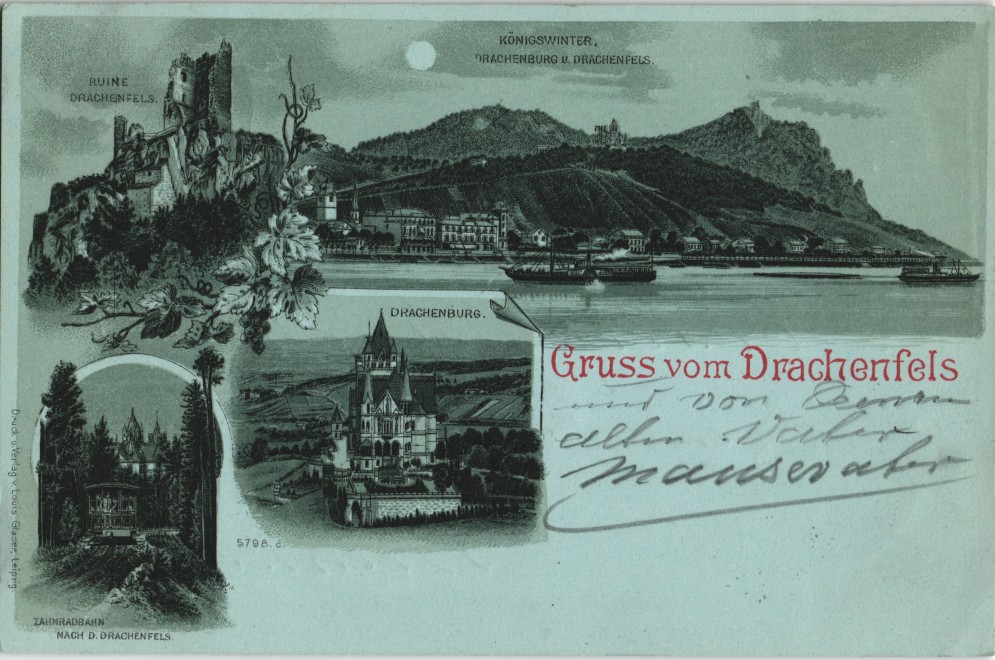 RUINE
DRACHENFELS.
KÖNIGSWINTER,
DRACHENBURG U. DRACHENFELS.
DRACHENBURG.
Gruss vom Drachenfels
und von
alten Vater
5798. d.
ZAHNRADBAHN
NACH D. DRACHENFELS.
Druck u. Verlag v. Louis Glaser, Leipzig